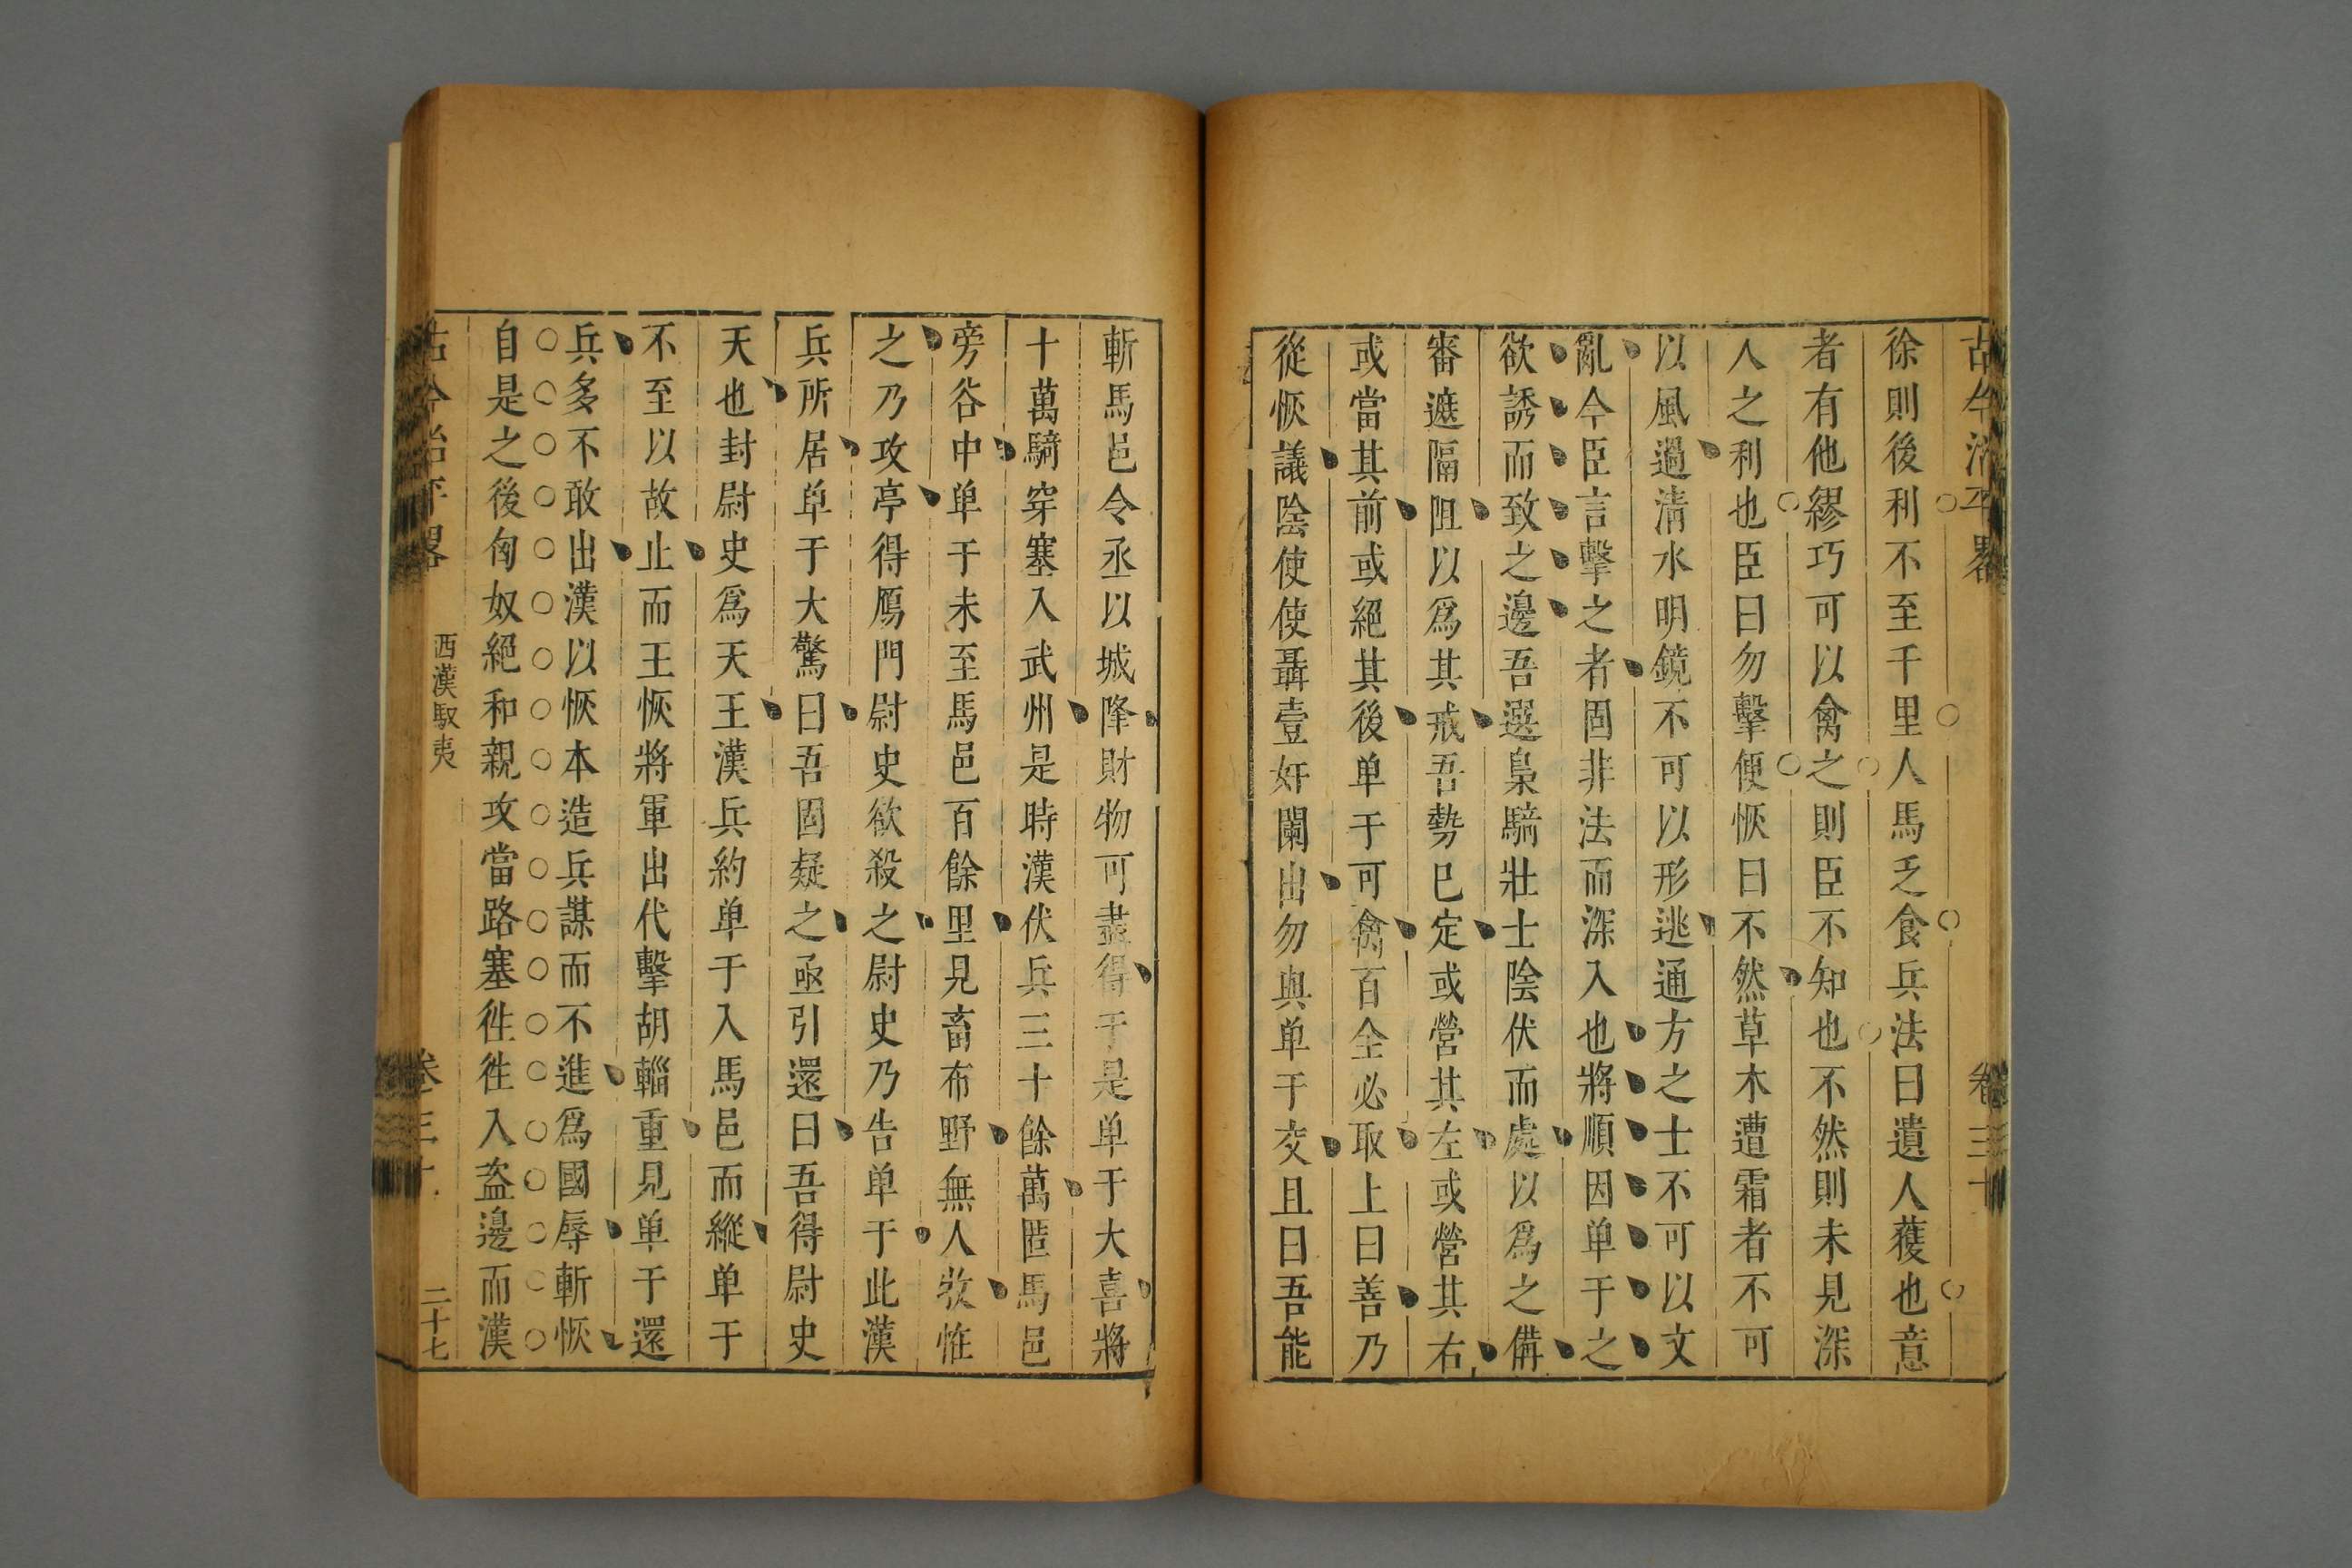 古今治平畧 卷三十
徐則後利不至千里人馬乏食兵法曰遺人獲也意
者有他繆巧可以禽之則臣不知也不然則未見深
入之利也臣曰勿擊便恢曰不然草木遭霜者不可
以風過清水明鏡不可以形逃通方之士不可以文
亂今臣言擊之者固非法而深入也將順因单于之
欲誘而致之邊吾選梟騎壯士陰伏而處以爲之備
審遮隔阻以爲其戒吾勢已定或營其左或營其右
或當其前或絕其後单于可禽百全必取上曰善乃
從恢議陰使使聶壹奸闌出勿與单于交且曰吾能
斬馬邑令丞以城降財物可盡得于是单于大喜將
十萬騎穿塞入武州是時漢伏兵三十餘萬匿馬邑
旁谷中单于未至馬邑百餘里見畜布野無人牧惟
之乃攻亭得鴈門尉史欲殺之尉史乃告单于此漢
兵所居单于大驚曰吾固疑之亟引還曰吾得尉史
天也封尉史爲天王漢兵約单于入馬邑而縱单于
不至以故止而王恢將軍出代擊胡輜重見单于還
兵多不敢出漢以恢本造兵謀而不進爲國辱斬恢
自是之後匈奴絕和親攻當路塞徃徃入盗邊而漢
古今治平畧 西漢馭夷 卷三十 二十七